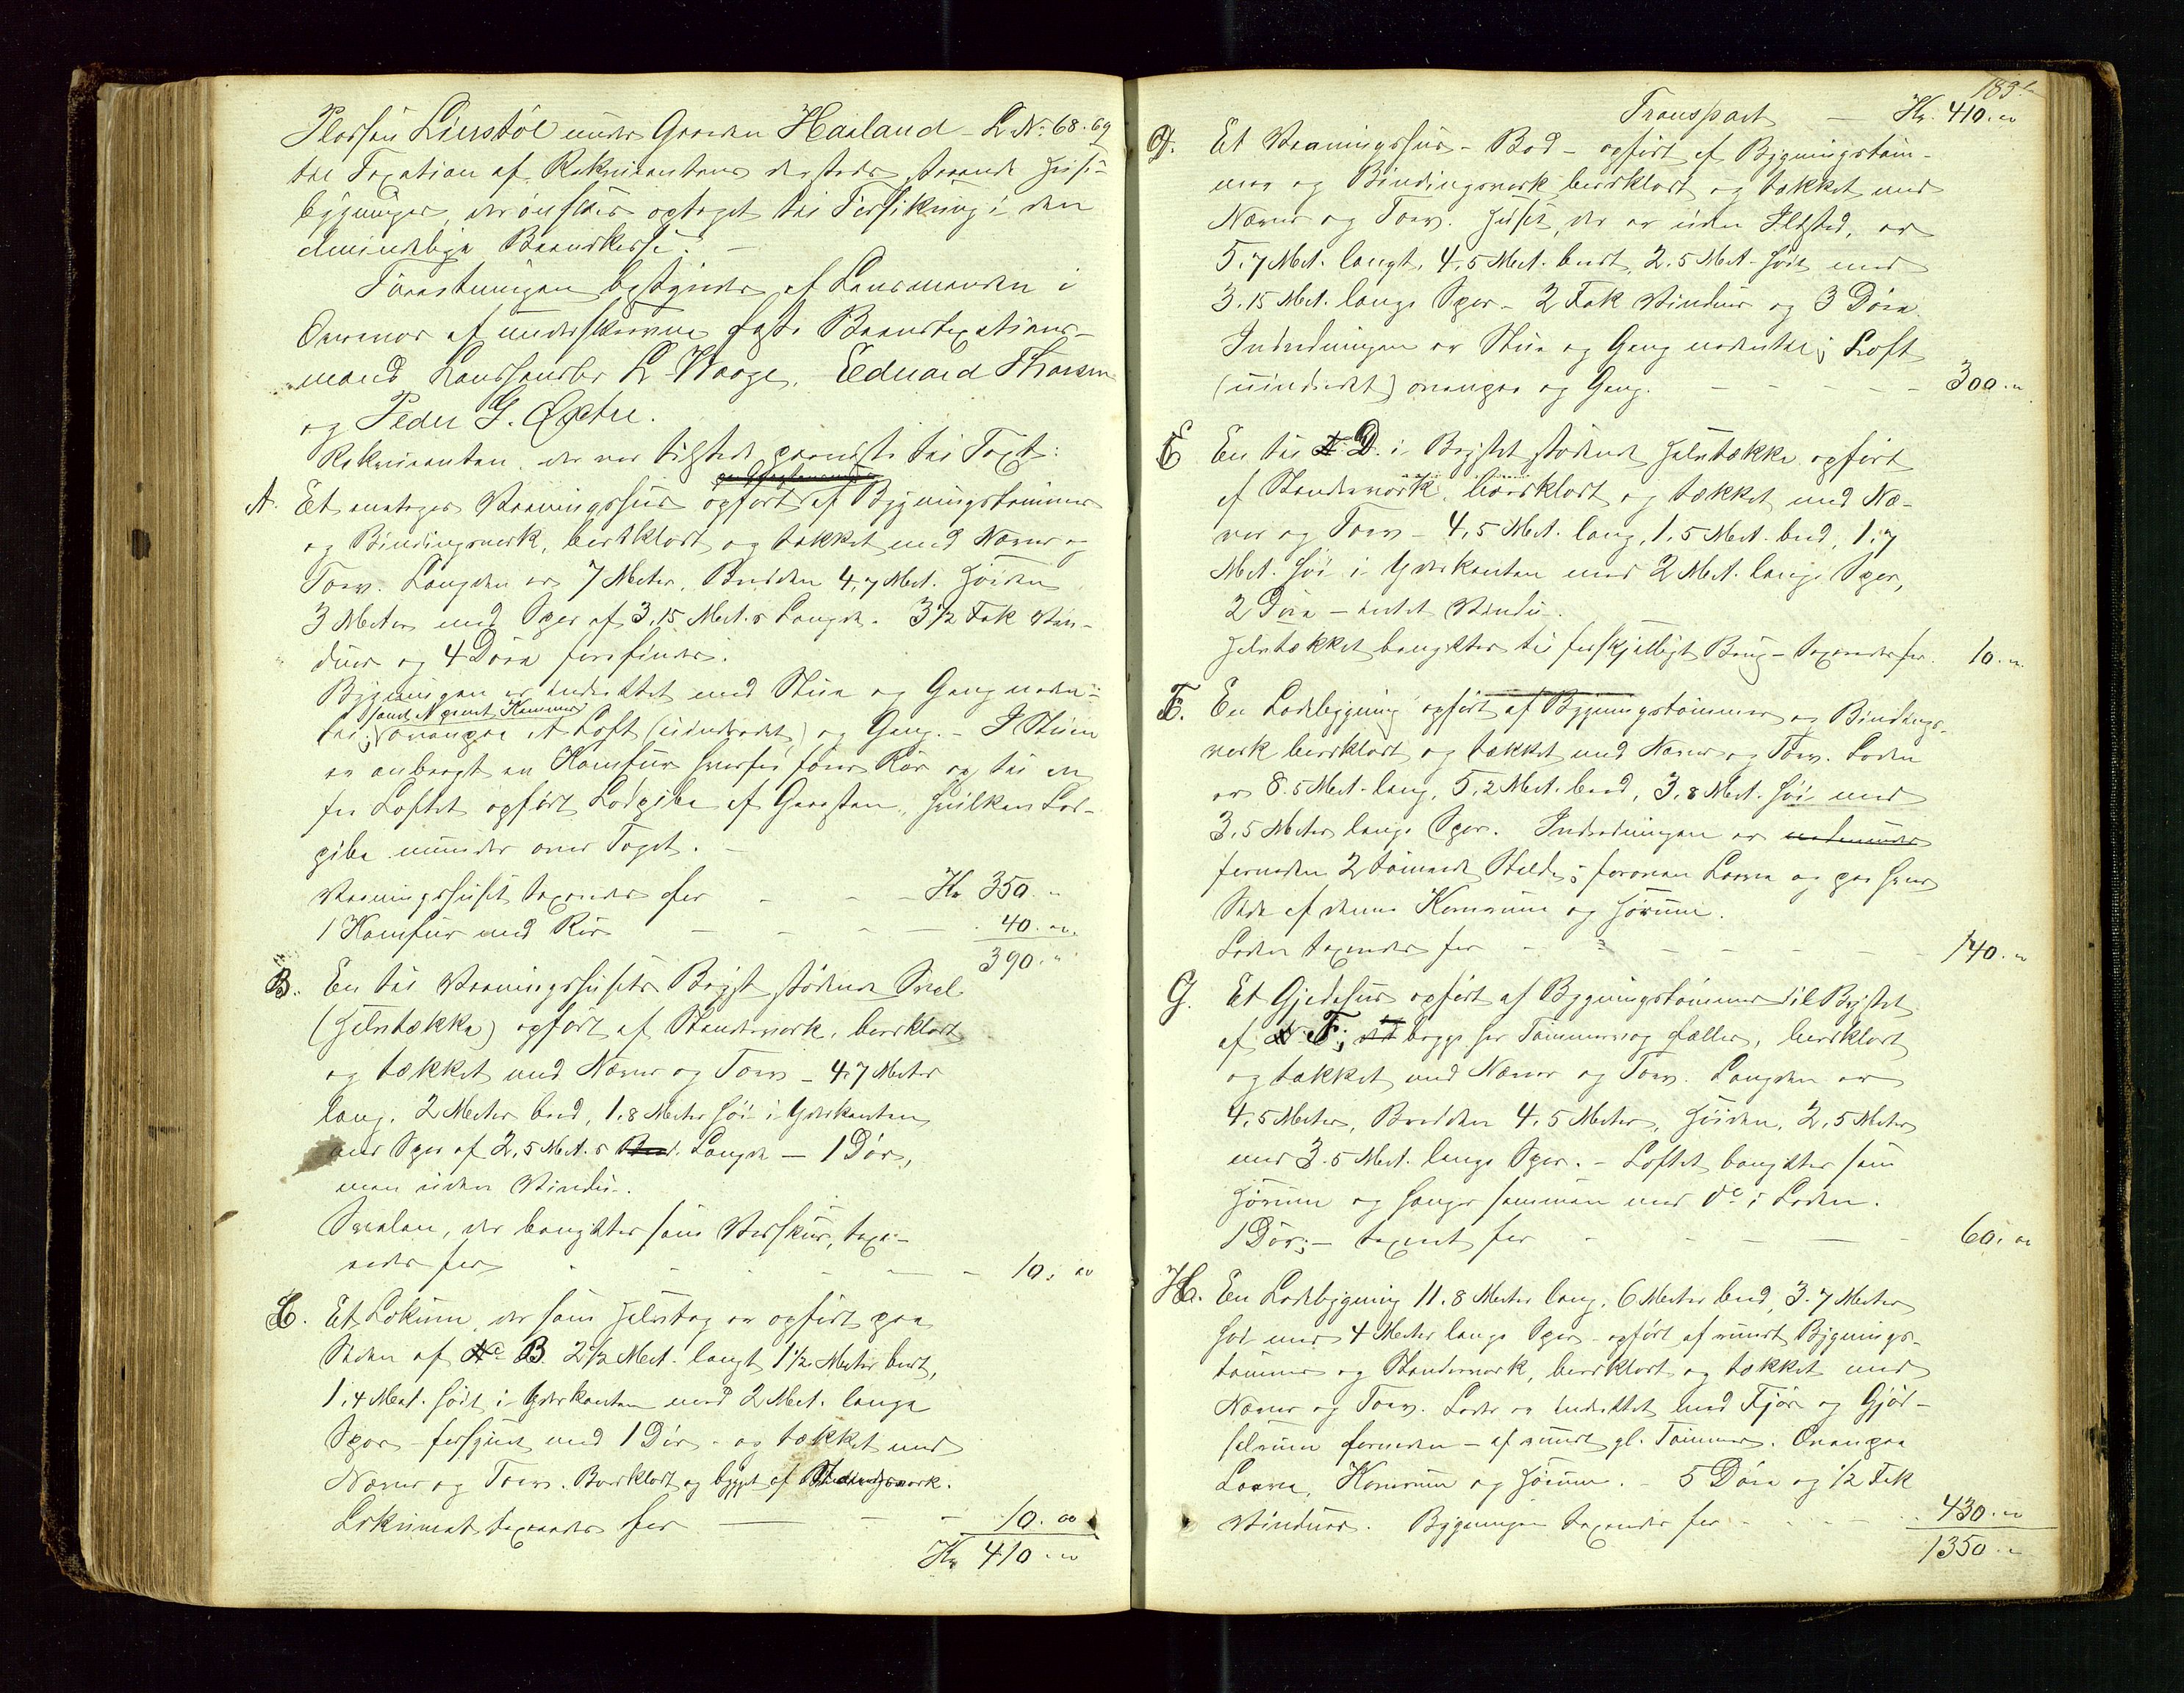 Pladsen Lierstöl under Gaarden Haaland - L. No. 68. 69
til Taxation af Rekvirentens dersteds staaende Huse-
bygninger, der ønskes optaget til Forsikring i den
almindelige Brandkasse. -
Forretningen bestyredes af Lensmanden i
Overvær af underskrevne faste Brandtaxations-
mænd L. Waage, Eduard Thorsen
og Peder G. Opstre.
Rekvirenten, der var tilstede paaviste til Taxt:
A. Et Vaaningshus opført af Bygningstømmer
og Bindingsverk, bordklædt og tækket med Næver og
Torv. Længden er 7 Meter, Bredden 4,7 Met. Høiden
3 Meter med Sper af 3,15 Met.s Længde. 3 1/2 Fak Vin-
duer og 4 Döre forefindes.
Bygningen er indrettet med Stue og Gang neden-
samt et Kammer
til; ovenpaa et Loft (uindredet) og Gang. - I Stuen
er anbragt en Komfur hvorfra fører Rör op til en
fra Loftet opført Lodpibe af Graasten, hvilken Lod-
pibe munder over Taget. -
Vaaningshuset taxeredes for - - - Kr 350. "
1 Komfur med Rör - - - - 40. "
390. "
B. En til Vaaningshusets Bryst stødende Sval
(Halvtække) opført af Standerverk, bordklædt
og tækket med Næver og Torv - 4,7 Meter
lang, 2 Meter bred, 1,8 Meter høi i Yderkanten
med Sper af 2,5 Met.s Længde - 1 Dör,
men uden Vindu.
Svalen, der benyttes som Vedskur, taxe-
redes for - - - - - 10. "
C. Et Lokum, der som Halvtag er opført paa
Siden af B. 2 1/2 Met. langt 1 1/2 Meter bredt,
1,4 Met. høit i Yderkanten med 2 Met. lange
Sper - forsynet med 1 Dör - og tækket med
Næver og Torv. Bordklædt og bygget af
Lokumet taxeredes for - - - 10. "
Kr 410. "
183.
Transport - Kr. 410. "
D. Et Vaaningshus - Bod - opført af Bygningstøm-
mer og Bindingsverk bordklædt og tækket med
Næver og Torv. Huset, der er uden Ildsted, er
5,7 Met. langt, 4,5 Met. bredt, 2,5 Met. høit med
3,15 Met. lange Sper - 2 Fak Vinduer og 3 Döre.
Indredningen er Stue og Gang nedentil; Loft
(uindredet) ovenpaa og Gang. - - - - - 300. "
E En til D. i Brystet stødende Halvtække opført
af Standerverk, bordklædt og tækket med Næ-
ver og Torv - 4,5 Met. lang, 1,5 Met. bred, 1,7
Met. høi i Yderkanten med 2 Met. lange Sper,
2 Döre - intet Vindu.
Halvtækket benyttes til forskjelligt Brug - taxeredes for. 10. "
F. En Ladebygning opført af Bygningstømmer og Bindings-
verk bordklædt og tækket med Næver og Torv. Laden
er 8,5 Met. lang, 5,2 Met. bred, 3,8 Met. høi med
3,5 Meter lange Sper. Indredningen er
forneden 2 tømrede Stalde; foroven Laave og paa hver
Side af denne Kornrum og Hørum.
Laden taxeredes for - - - - - 140. "
G. Et Gjedehus opført af Bygningstømmer til Brystet
af F; begge har Tømmervæg fælles, bordklædt
og tækket med Næver og Torv. Længden er
4,5 Meter, Bredden 4,5 Meter, Høiden, 2,5 Meter
med 3,5 Met. lange Sper. - Loftet benyttes som
Hørum og hænger sammen med do i Laden.
1 Dör; - taxeret for - - - - - 60. "
H. En Ladebygning 11,8 Meter lang, 6 Meter bred, 3,7 Meter
høi med 4 Meter lange Sper - opført af rundt Bygnings-
tømmer og Standerverk, bordklædt og tækket med
Næver og Torv. Laden er indrettet med Fjøs og Gjød-
selrum forneden - af rundt gl. Tømmer. Ovenpaa
Laave, Kornrum og Hørum. - 5 Döre og 1/2 Fak
Vinduer. Bygningen taxeredes for - - - - 430. "
1350. "